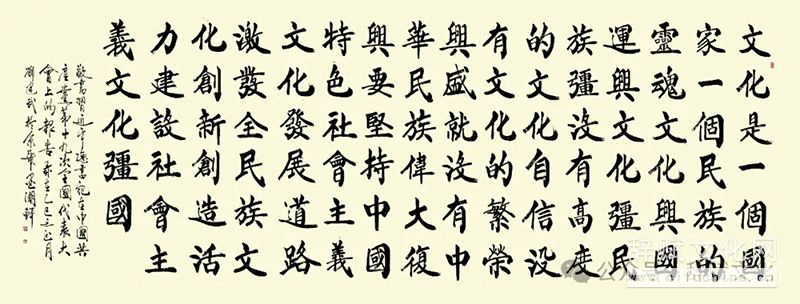 文化是一個國
家一個民族的
靈魂文化興國
運興文化彊民
族彊沒有高度
的文化自信沒
有文化的繁榮
興盛就沒有中
華民族偉大復
興要堅持中國
特色社會主義
文化發展道路
激發全民族文
化創新創造活
力建設社會主
義文化彊國
敬書習近平總書記在中國共
產黨第十九次全國代表大
會上的報告歲在乙巳之正月
於京華墨瀾軒
辞赋文化网
公众号